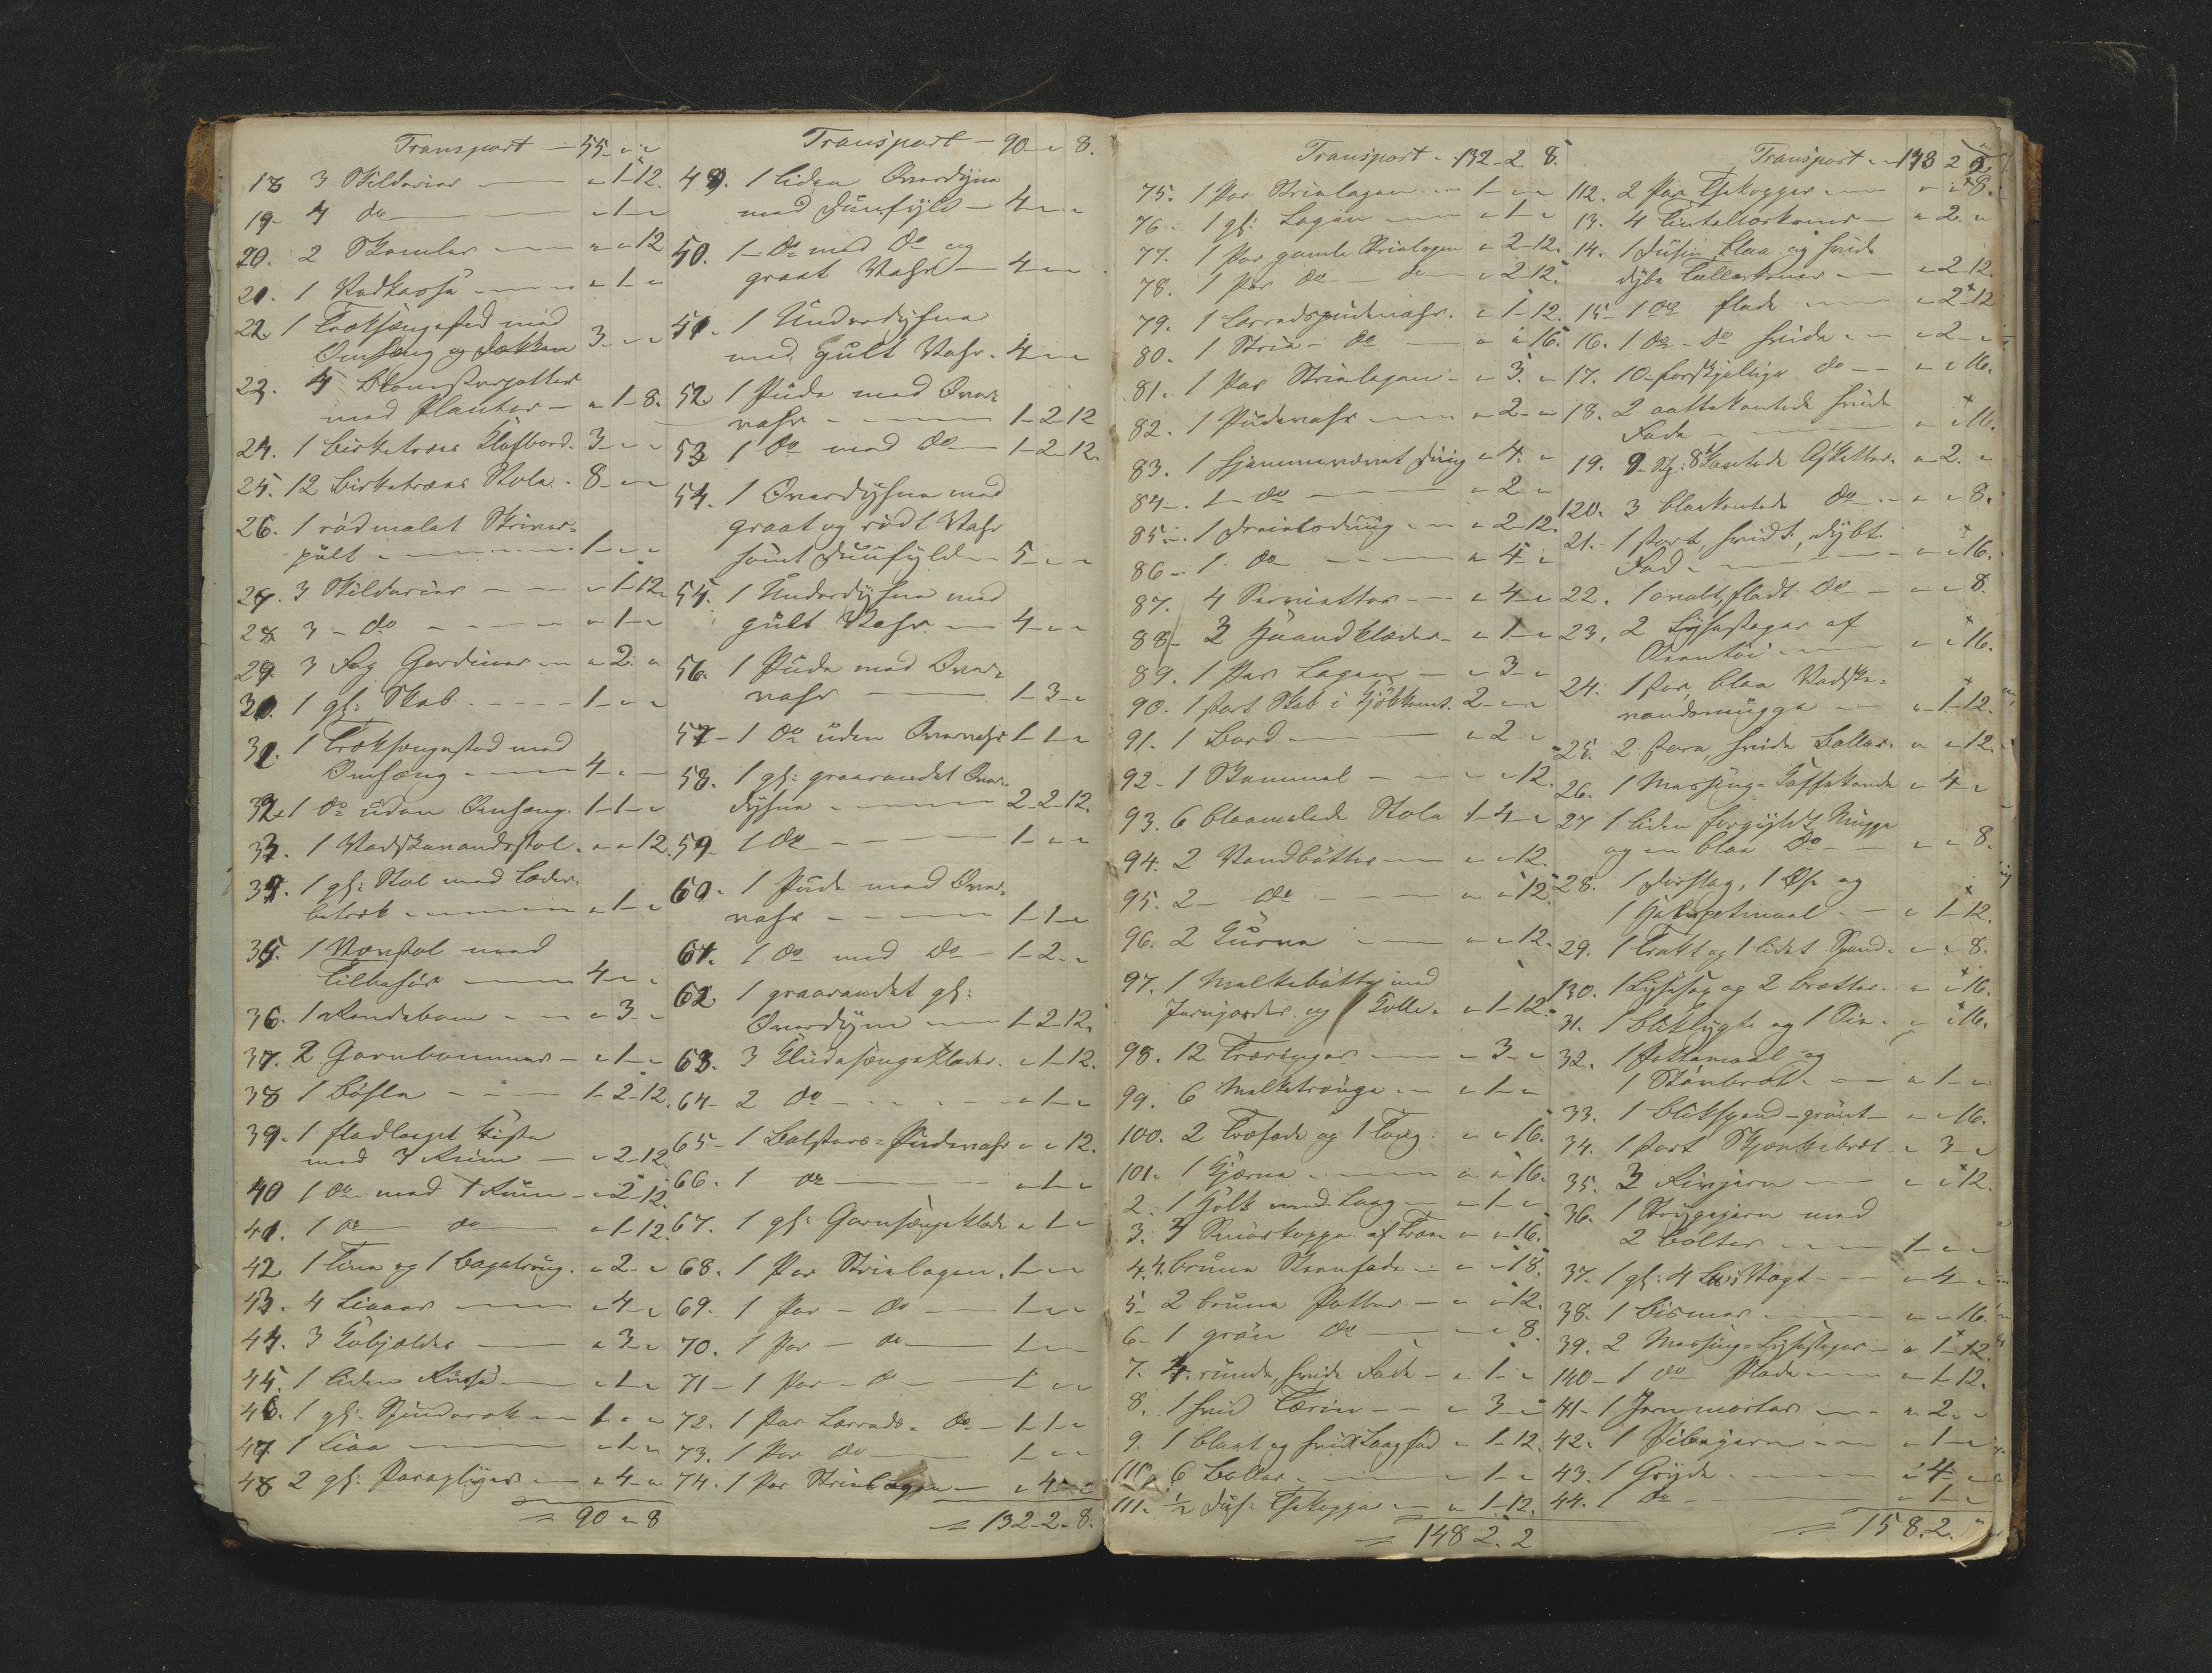 Transport - 55 - " - "
18 3 Skilderier - " - 1 - 12.
19 - 4 do - " - 1 - "
20. 2 Skamler - " - " - 12
21. 1 Vedkasse - " - 1 - "
22. 1 Træksengested med
Omhæng og Dækken 3 - " - "
23. 4 Blomsterpotter
med Planter - " - 1 - 8.
24. 1 Birketræes Klafbord. 3 - " - "
25. 12 Birketræes Stole - 8 - " - "
26. 1 rødmalet Skriver-
pult - 1 - " - "
27. 3 Skilderier - " - 1 - 12
28 3 - do - " - 1 - "
29. 3 Fag Gardiner - " - 2. "
30. 1 gl: Skab - 1 - " - "
31. 1 Træksengested med
Omhæng - 4 - " - "
32. 1 do uden Omhæng. 1 - 1 - "
33. 1 Vadskevandsstol. " - " - 12.
34. 1 gl: Stol med Læder-
betræk - " - 1 - "
35. 1 Vævstol med
Tilbehør - 4 - " - "
36. 1 Rendebom - " - 3 - "
37. 2 Garnbommer - " - 1 - "
38 1 Bøsse - 1 - 2 - 12.
39. 1 fladlaaget Kiste
med 3 Rum - " - 2 - 12.
40 1 do med 1 Rum - " - 2 - 12.
41. 1 do do " - 1 - 12.
42 1 Tine og 1 Bagetrug. " - 2 - "
43. 4 Liaaer - " - 4 - "
44. 3 Kobjælder - " - 3 - "
45. 1 liden - " - 1 - "
46. 1 gl: Spinderok - 1 - " - "
47. 1 Liaa - " - 1 - "
48 2 gl: Paraplyer - " - 4 - "
= 90 " 8
Transport - 90 - " - 8.
49. 1 liden Overdyne
med Duunfyld - 4 - " - "
50. 1 - do med do og
graat Vahr - 4 - " - "
51. 1 Underdyhne
med gult Vahr. 4 - " - "
52. 1 Pude med Over-
vahr - 1 - 2 - 12
53 1 do med do - 1 - 2 - 12.
54. 1 Overdyhne med
graat og rødt Vahr
samt Duunfyld - 5 - " - "
55. 1 Underdyhne med
gult Vahr - 4 - " - "
56. 1 Pude med Over-
vahr - 1 - 3 - "
57 - 1 do uden Overvahr 1 - 1 - "
58. 1 gl: graarandet Over-
dyhne - 2 - 2 - 12.
59. 1 do - 1 - " - "
60. 1 Pude med Over-
vahr - 1 - 1 - "
61. 1 do med do - 1 - 2 - "
62. 1 graarandet gl:
Overdyne - 1 - 2 - 12.
63. 3 Kludesengeklæder. " - 1 - 12.
64 - 2 do - " - 1 - "
65 - 1 Bolsters-Pudevahr " - " - 12.
66. 1 do - " - 1 - "
67. 1 gl: Garnsengeklæde " - 1 - "
68. 1 Par Strielagen. 1 - " - "
69. 1 Par - do - 1 - " - "
70. 1 Par - do - 1 - " - "
71 - 1 Par - do - 1 - " - "
72. 1 Par Lærreds - do - 1 - 1 - "
73. 1 Par do - 1 - " - "
74. 1 Par Strielagen - " - 4 - "
= 132 - 2 - 8.
Transport - 132 - 2 8.
75. 1 Par Strielagen - 1 - " - "
76. 1 gl: Lagen - " - 1 - "
77. 1 Par gamle Strielagen " - 2 - 12.
78. 1 Par do - do " - 2 - 12.
79. 1 Lærredspudevahr. " - 1 - 12.
80. 1 Strie - do " - " - 16.
81. 1 Par Strielagen - " - 3. "
82. 1 Pudevahr - " - 2 - "
83. 1 hjemmevævet Dug " - 4. "
84 - 1 - do - " - 2 - "
85 - 1 Dreielsdug - " - 2 - 12.
86 - 1 do - " - 4 - "
87. 4 Servietter - " - 4 - "
88 - 3 Haandklæder - " - 1 - "
89. 1 Par Lagen - " - 3 - "
90. 1 stort Skab i Kjøkkenet. 2 - " - "
91. 1 Bord - " - 2 - "
92 - 1 Skammel - " - " - 12.
93. 6 blaamalede Stole 1 - 4 - "
94. 2 Vandbøtter - " - " - 12.
95. 2 - do - " - " - 12.
96. 2 Kurve - " - " - 12.
97. 1 Melkebøtte med
Jerngjorder og 1 Kolle. " - 1 - 12.
98. 12 Træringer - " - 3 - "
99. 6 Melketrouge - " - 1 - "
100. 2 Træfade og 1 Traug. " - " - 16.
101. 1 Kjærne - " - " - 16.
2. 1 Holk med Laag - " - 1 - "
3. 3 Smørkopper af Træ " - " - 16.
4. 4 brune Steenfade - " - " - 18.
5 - 2 brune Potter - " - " - 12.
6 - 1 grøn do - " - " - 8.
7. 4 runde, hvide Fade - " - 1 - "
8. 1 hvid Terin - " - 3 - "
9. 1 blaat og hvidt Laagfad " - 1 - 12.
110. 6 Boller - " - 1 - "
111. ½ Dus: Thekopper - " - 1 - 12.
= 148 2. 2
Transport - 148 2 2.
112. 2 Par Thekopper - " - " - 8.
13. 4 Tintallerkener - " - 2. "
14. 1 Dusin blaa og hvide
dybe Tallerkener - " - 2 - 12.
15 - 1 do flade - " - 2 - 12
16. 1 do - do hvide - " - 2 - "
17. 10 - forskjellige do - " - " - 16.
18. 2 aattekantede hvide
Fade - " - " - 16.
19. 9. St: 8kantede Asietter. " - 2. "
120. 3 blaakantede do - " - " - 8.
21. 1 stort, hvidt, dybt
Fad - " - " - 16.
22. 1 ovalt, fladt do - " - " - 8.
23. 2 Lysestager af
- " - " - 16.
24. 1 stor, blaa Vadske-
vandsmugge - " - 1 - 12.
25. 2 store, hvide Boller. " - " - 12.
26. 1 Messing-Kaffekande " - 4 - "
27 1 liden forgyldt Mugge
og en blaa do - " - " - 8.
28. 1 Dørslag, 1 Øse og
1 Halvpotmaal - " - 1 - 12.
29. 1 Trakt og 1 lidet Spand. " - " - 8.
130. 1 Lysesax og 2 Brætter. " - " - 16.
31. 1 Bliklygte og 1 - " - " - 16.
32. 1 Pottemaal og
1 - " - 1 - "
33. 1 Blikspand - grønt - " - " - 16.
34. 1 stort Skjænkebræt - " - 3 - "
35. 3 Rivjern - " - " - 12.
36. 1 Strygejern med
2 Bolter - 1 - " - "
37. 1 gl: 4 Vægt - " - 4 - "
38. 1 Bismer - " - " - 16.
39. 2 Messing-Lysestager - " - 1 - 12.
140 - 1 do Plade - " - 1 - 12.
41 - 1 Jernmorter - " - 2. "
42. 1 Pibejern - " - 1 - "
43. 1 Gryde " - 4 - "
44. 1 do - " - 1 - "
= 158. 2. "